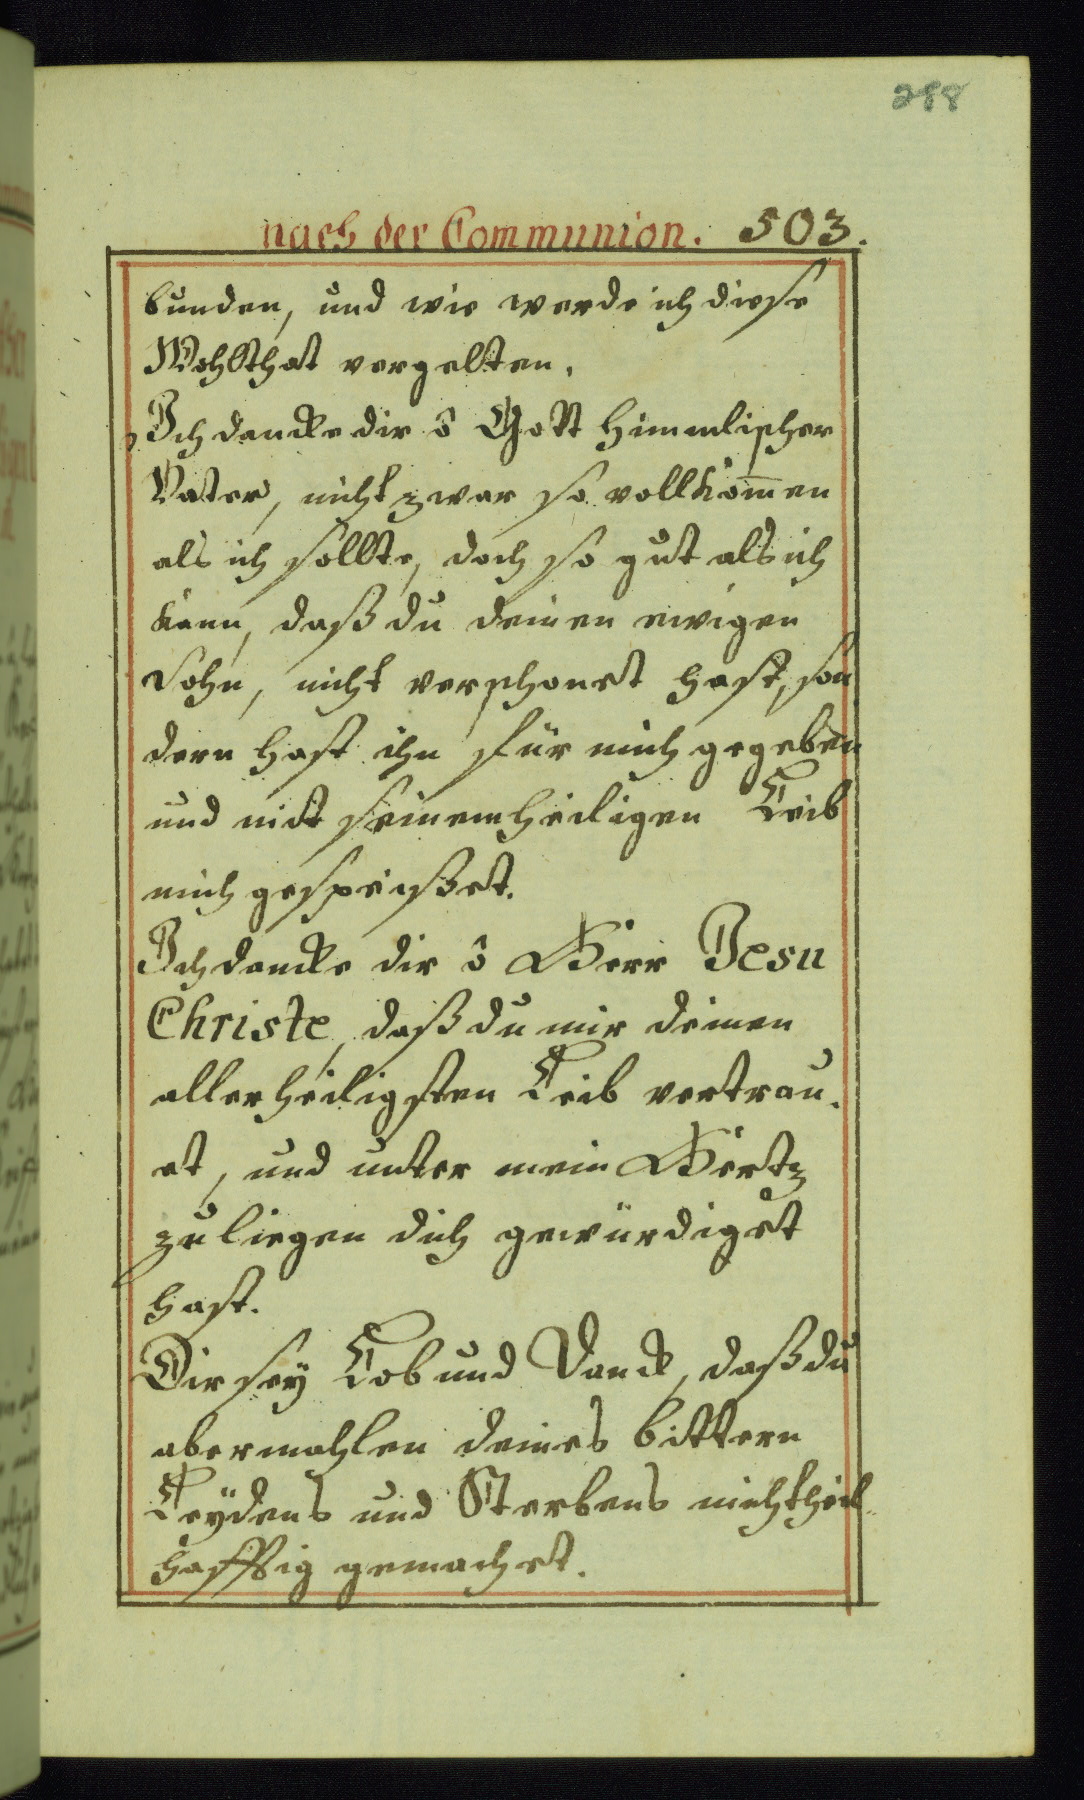 288
nach der Communion. 503.
bunden, und wie werde ich diese
Wohlthat vergelten.
Ich dancke dir ô Gott himmlischer
Vater, nicht zwar so vollkom̄en
als ich sollte, doch so gut als ich
kann, daß du deinen ewigen
Sohn, nicht verschonet hast, son
dern hast ihn für mich gegeben
und mit seinem heiligen Leib
mich gespeißet.
Ich dancke dir ô Herr Jesu
Christe, daß du mir deinen
allerheiligsten Leib vertrau-
et, und unter mein Hertz
zu liegen dich gewürdiget
hast.
Dir sey Lob und Danck, daß du
abermahlen deines bittern
Leÿdens und Sterbens mich theil-
hafftig gemachet.